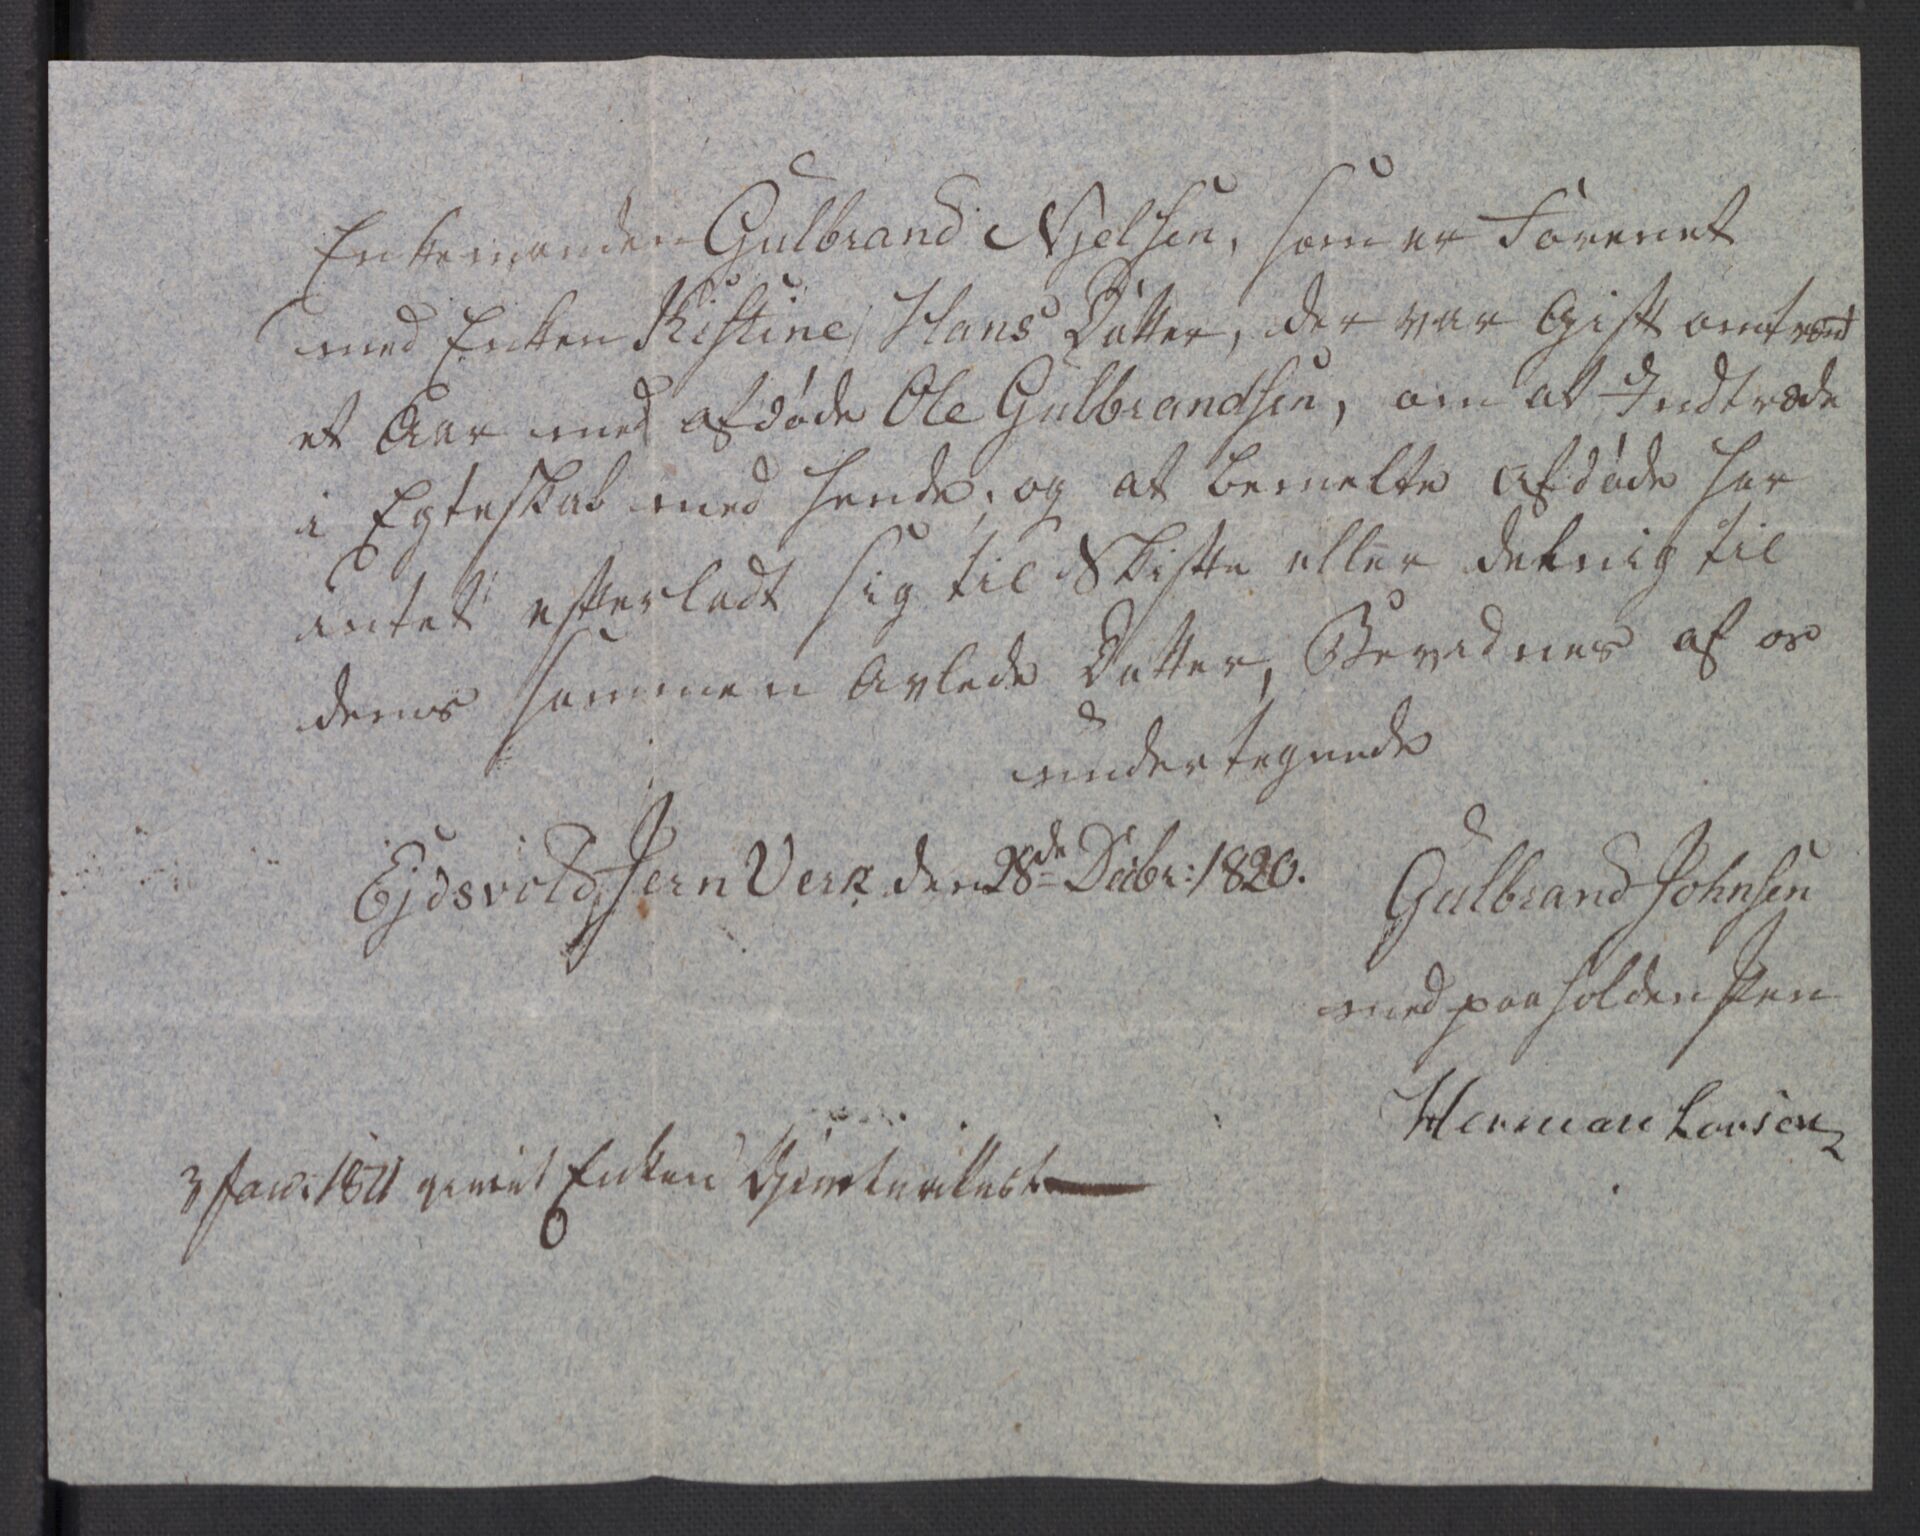 Enkemanden Gulbrand Njelsen, som er Forenet
med Enken Kistine Hans Datter, der var Gift omtrent
et Aar med afdøde Ole Gulbrandsen, om at Indtræde
i Egteskab med hende, og at bemelte Afdøde har
intet efterladt sig til Skifte eller delning til
deres sammen Avlede Datter, Bevidnes af os
undertegnede
Ejdsvold Jern Verk den 28de Decbr: 1820.
Gulbrand Johnsen
med paaholden Pen
Herman Larsen
3 Janu: 1821 Enken